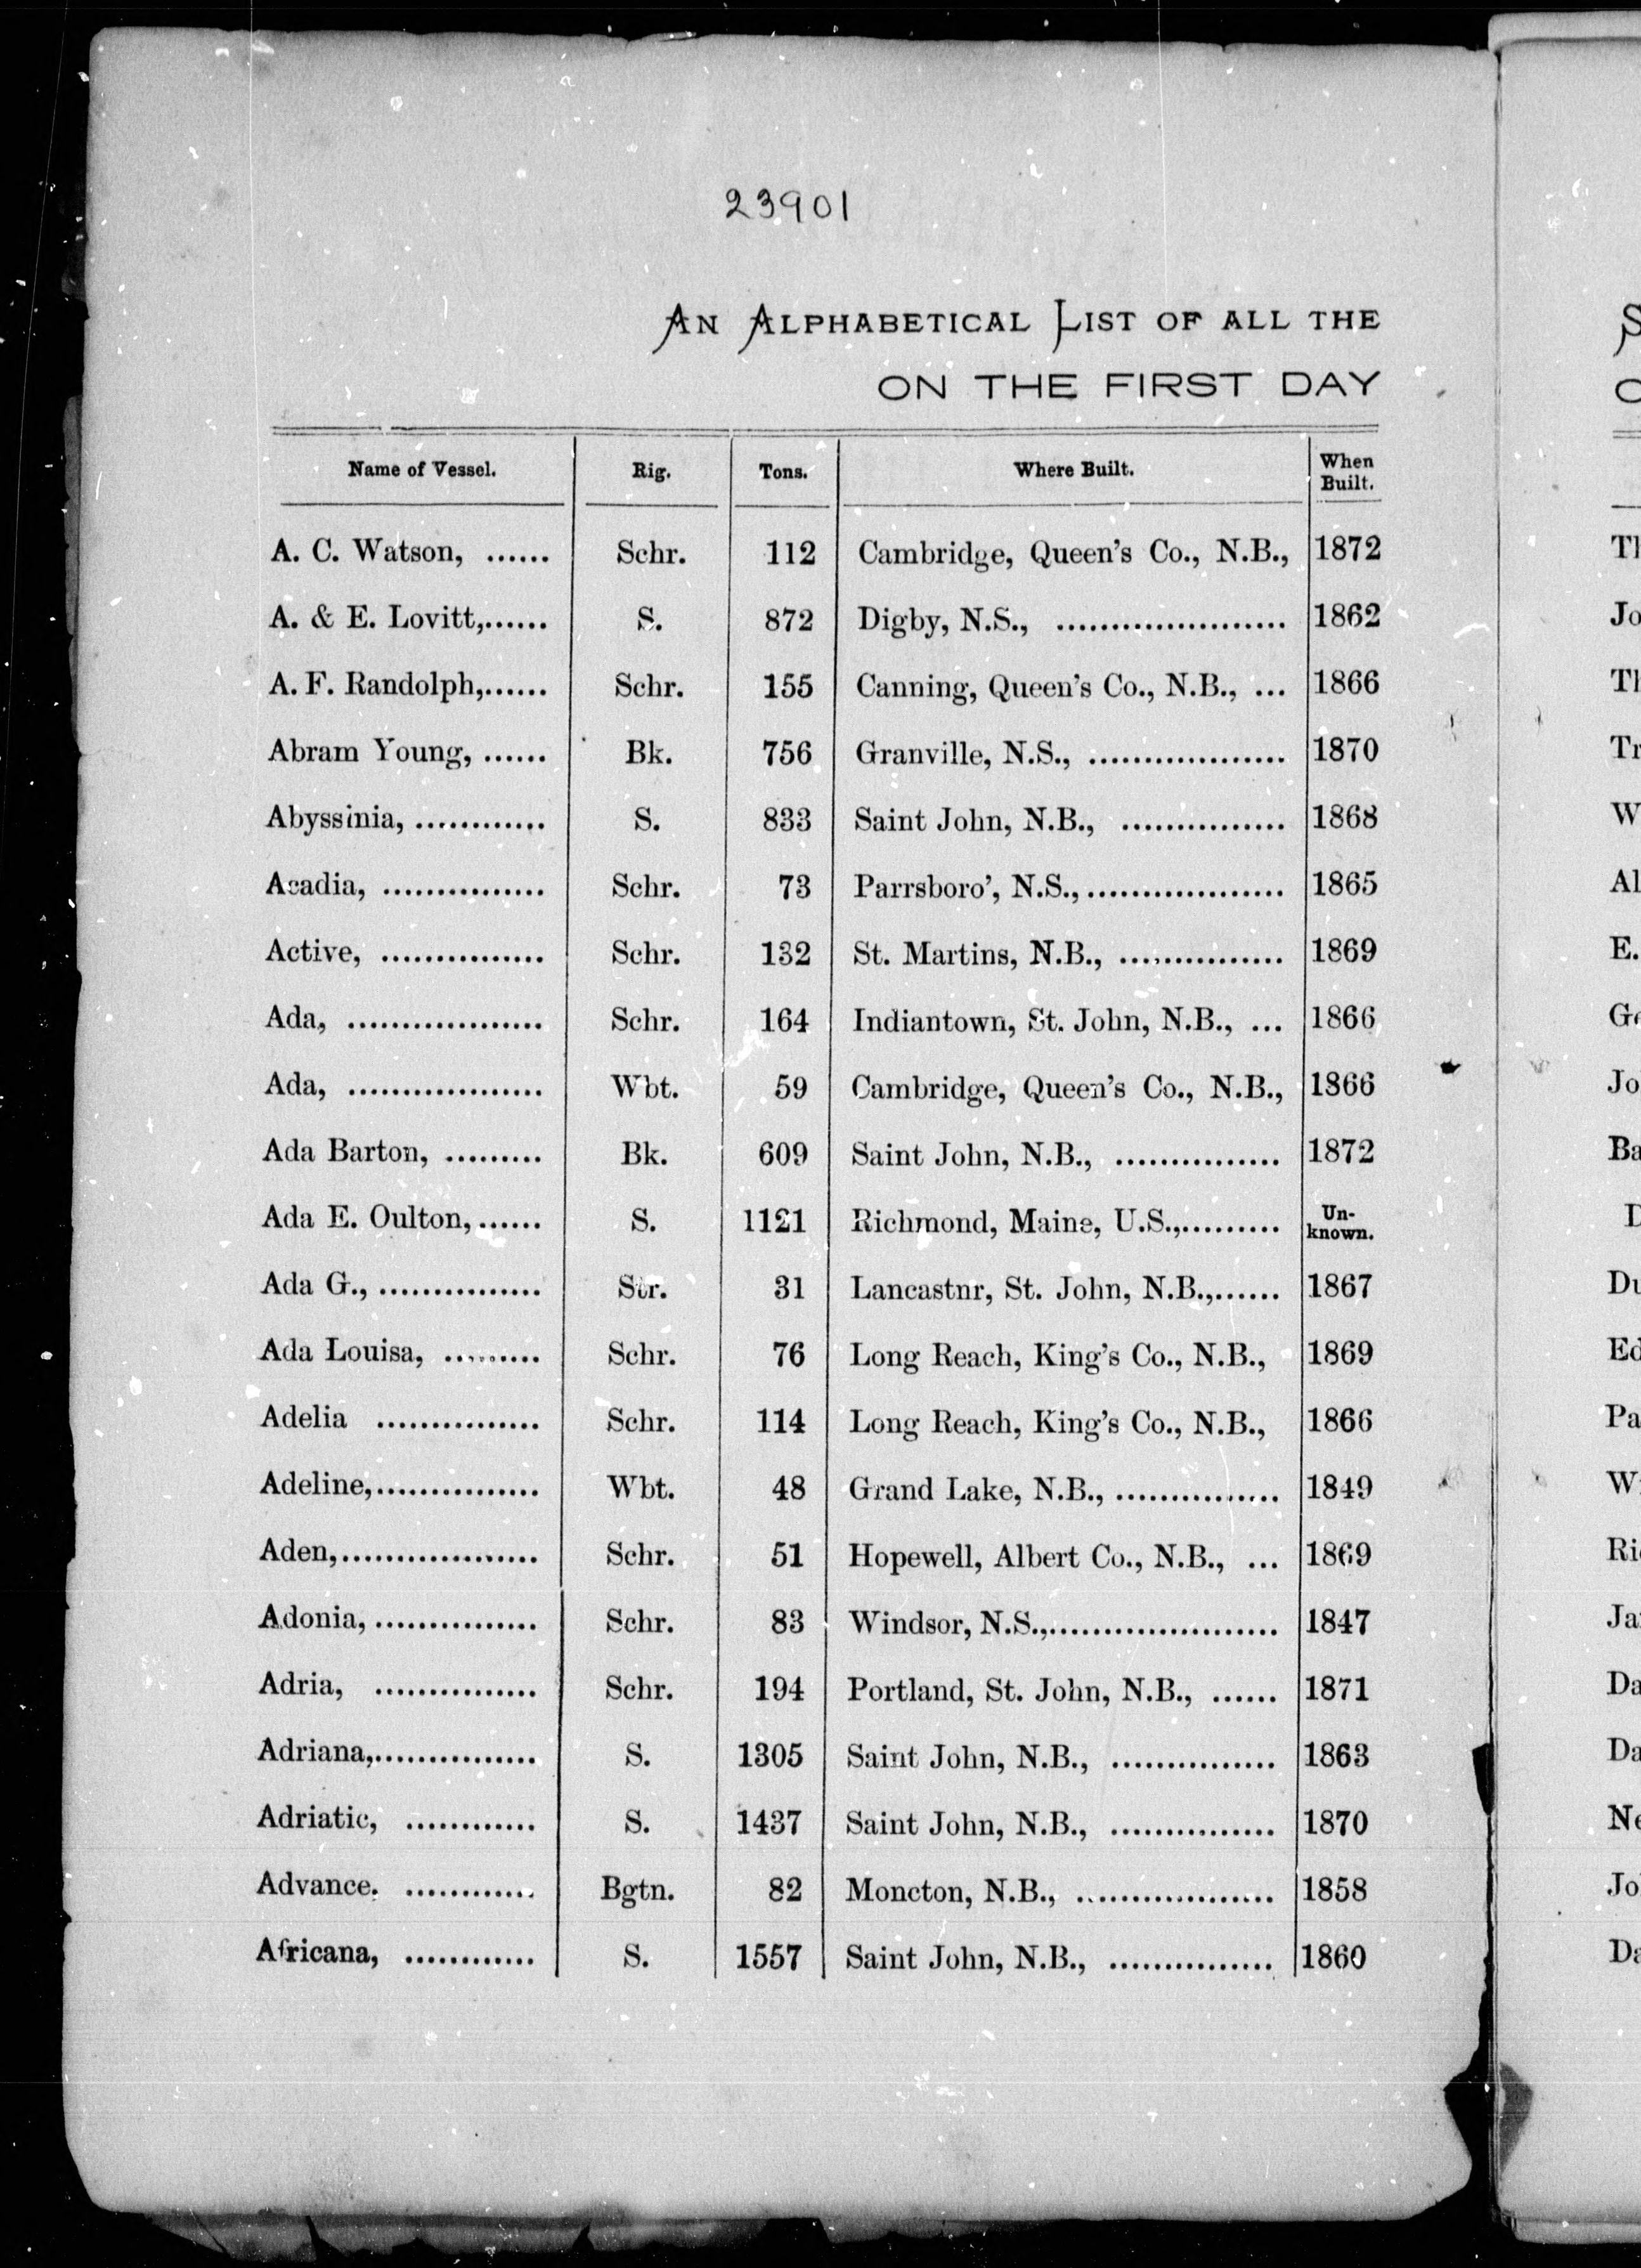 23901
AN ALPHABETICAL LIST OF ALL THE
ON THE FIRST DAY
Name of Vessel. Rig. Tons. Where Built. When Built.
A. C. Watson, ...... Schr. 112 Cambridge, Queen's Co., N.B., 1872
A. & E. Lovitt,...... S. 872 Digby, N.S., ..................... 1862
A. F. Randolph,...... Schr. 155 Canning, Queen's Co., N.B., ... 1866
Abram Young, ...... Bk. 756 Granville, N.S., .................. 1870
Abyssinia, ............ S. 833 Saint John, N.B., ............... 1868
Acadia, ............... Schr. 73 Parrsboro', N.S.,.................. 1865
Active, ............... Schr. 132 St. Martins, N.B., ............... 1869
Ada, .................. Schr. 164 Indiantown, St. John, N.B., ... 1866
Ada, .................. Wbt. 59 Cambridge, Queen's Co., N.B., 1866
Ada Barton, ......... Bk. 609 Saint John, N.B., ............... 1872
Ada E. Oulton,...... S. 1121 Richmond, Maine, U.S.,......... Un-known.
Ada G., ............... Str. 31 Lancastnr, St. John, N.B.,...... 1867
Ada Louisa, ......... Schr. 76 Long Reach, King's Co., N.B., 1869
Adelia ............... Schr. 114 Long Reach, King's Co., N.B., 1866
Adeline,............... Wbt. 48 Grand Lake, N.B., ............... 1849
Aden,.................. Schr. 51 Hopewell, Albert Co., N.B., ... 1869
Adonia, ............... Schr. 83 Windsor, N.S.,..................... 1847
Adria, ............... Schr. 194 Portland, St. John, N.B., ...... 1871
Adriana,............... S. 1305 Saint John, N.B., ............... 1863
Adriatic, ............ S. 1437 Saint John, N.B., ............... 1870
Advance. ............ Bgtn. 82 Moncton, N.B., .................. 1858
Africana, ............ S. 1557 Saint John, N.B., ............... 1860